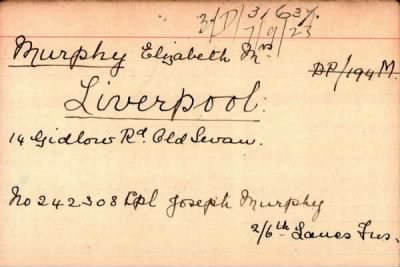 3/D/31637.
7/9/23
Murphy Elizabeth Mrs
DP/194 M.
Liverpool:
14 Gidlow Rd. Old Swan.
No 242308 Cpl Joseph Murphy
2/6th Lancs Fus.